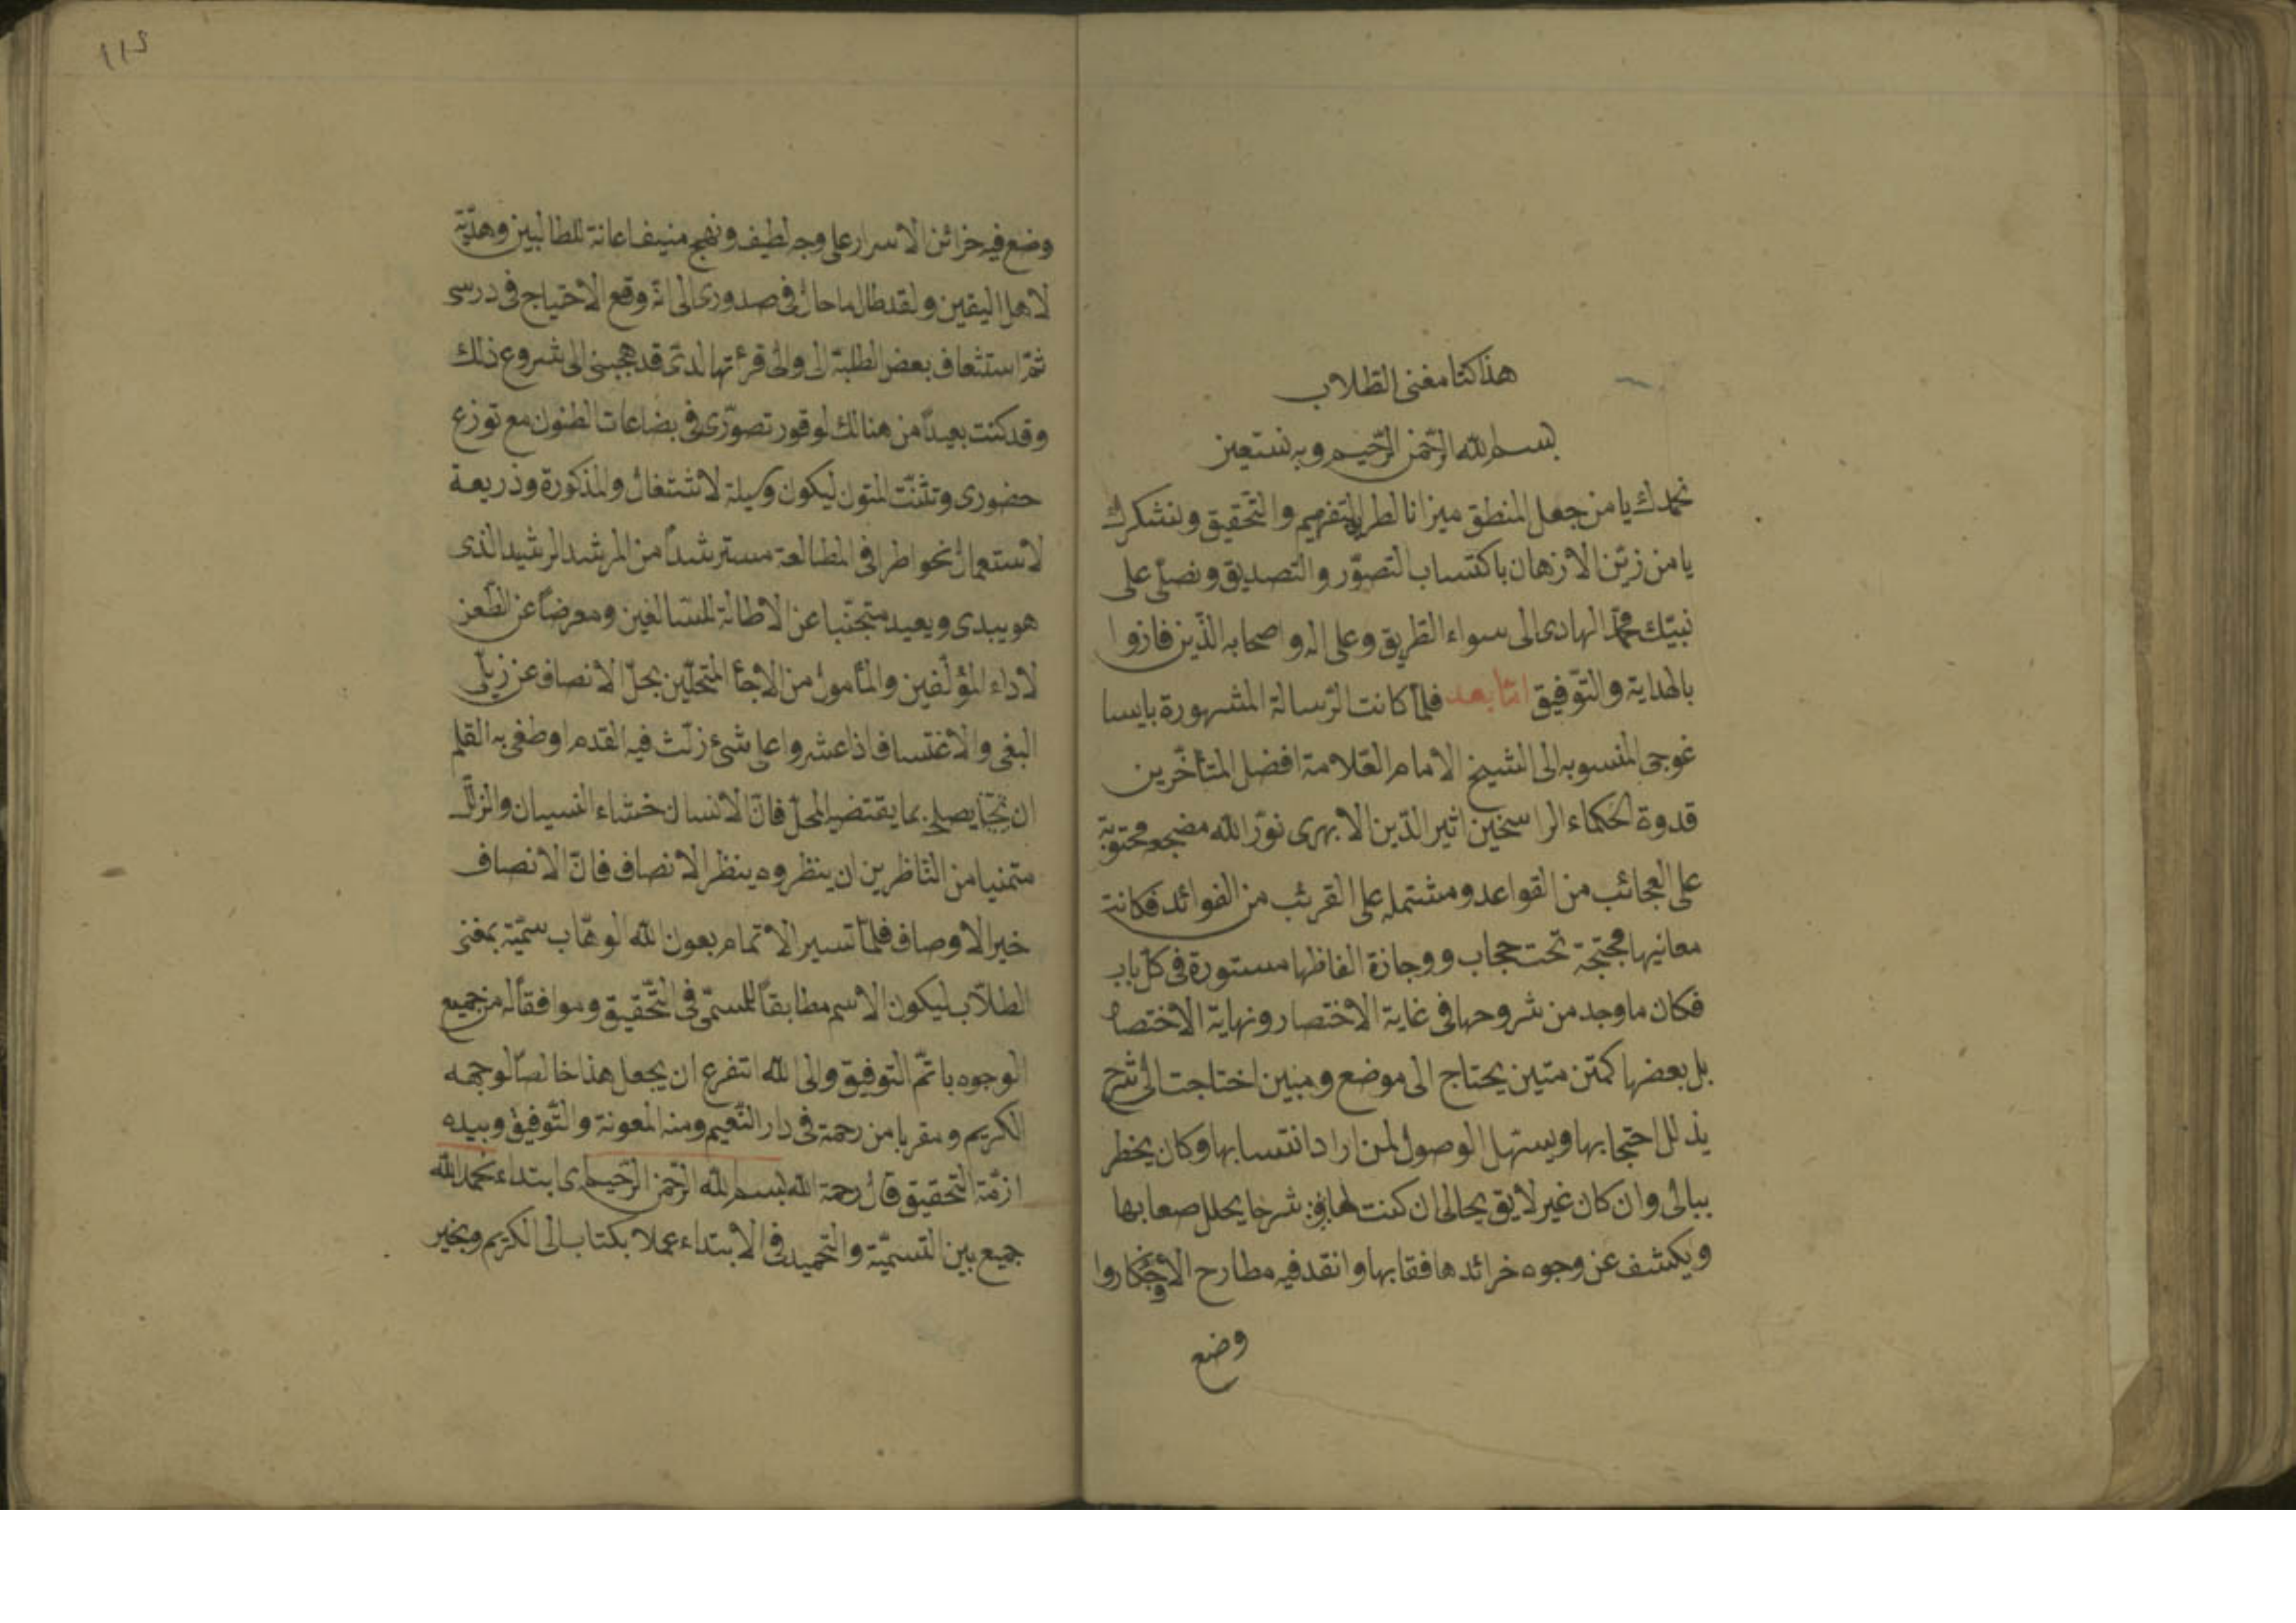 هذا كتا مغنى الطلاب
بسم الله الرّحمن الرّحيم وبه نستعين
نحمدك يا من جعل المنطق ميزانا لطريق التفهيم والتّحقيق ونشكرك
يا من زيّن الازهان باكتساب التصوّر والتصديق ونصلّى على
نبيّك محمّد الهادى الى سواء الطريق وعلى اله واصحابه الذّين فازوا
بالهداية والتّوفيق امّا بعد فلمّا كانت الرّسالة المشهورة بايسا
غوجى المنسوبه الى الشيخ الامام العّلامة افضل المتأخّرين
قدوة الحكماء الراسخين اثير الدّين الابهرى نوّر الله مضجعه محتوية
على العجائب من القواعد ومشتمله على القرئب من الفوائد فكانت
معانيها محتجة تحت حجاب ووجازة الفاظها مستورة فى كلّ باب
فكان ما وجد من شروحها فى غاية الاختصار ونهاية الاختصا
بل بعضها كمتن متين يحتاج الى موضع ومبين اختاجت الى شرح
يذلل احتجابها ويستهل الوصول لمن اراد انتسابها وكان يخطر
ببالى وان كان غير لايق بحالى ان كنت لها شرحا يحلل صعابها
ويكشف عن وجوه خرائدها فقابها وانقد فيه مطارح الافكار وا
وضع
١١٥
وضع فيه خزائن الاسرار على وجه لطيف ونهج منيف اعانة للطالبين وهديّة
لاهل اليقين ولقد طال ما حال فى صدورى الى انّه وقع الاحتياج فى درسى
ثمّ استشعاف بعض الطلبة الى والى قرئتها لدىّ قد هجبنى الى شروع ذلك
وقد كنت بعيداً من هنالك لوقور تصوّرى فى بضاعات الطنون مع توزع
حضورى وتشّتت المتون ليكون وسيلة لاشتغال والمذكورة وذريعة
لاستعمال نحو اطرا فى المطالعة مسترشداً من المرشد الرشيد الذى
هو يبدى ويعيد متجنّبا عن الاطالة المسالغين ومعرضاً عن الطّعن
لاداء المؤلّفين والمأمول من الاجأ المتحلّين بحلّ الانصاف عن زيلى
البغى والاغتساف اذا عشروا على شئ زلّث فيه القدم او طغى به القلم
ان يصلح بما يقتضى المحلّ فانّ الانسان خشاء النسيان والزلّل
متمنيا من النّاظرين ان ينظروه ينظر الانصاف فانّ الانصاف
خير الاوصاف فلمّا تسير الاتمام بعون الله الوهّاب سمّيته بمغنى
الطلّاب ليكون الاسم مطابقاً للمسمّى فى التّحقيق وموافقاً له من جميع
الوجوه باتمّ التوفيق والى الله اتفرع ان يجعل هذا خالصاً لوجهه
الكريم ومقربا من رحمة فى دار النّعيم ومنه المعونة والتّوفيق وبيده
ازمّة التّحقيق قال رحمة الله بسم الله الرّحمن الرّحيم اى ابتداء نحمد الله
جميع بين التسميّة والتّحميد فى الابتداء عملا بكتاب الى الكريم وبخير